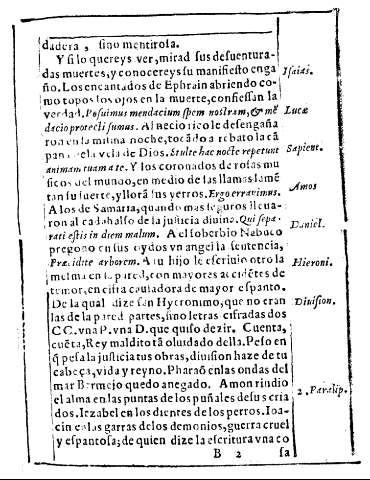 dadera, sino mentirosa.
Y si lo quereys ver, mirad sus desuentura-
das muertes, y conocereys su manifiesto enga
ño. Los encantados de Ephrain abriendo co-
mo topos los ojos en la muerte, confiessan la
verdad. Posuimus mendacium spem nostram, & mẽ
dacio protecti sumus. Al necio rico le desengaña
ron en la mitna noche, tocãdo a rebato la cã
pana la vela de Dios. Stulte hac nocte repetunt
animam tuam a te. Y los coronados de rosas mu
sicos del mundo, en medio de las llamas lamẽ
tan su suerte, y llorã sus yerros. Ergo errauimus.
A los de Samaria, quando mas seguros lleua-
ron al cadahalso de la justicia diuina. Qui sepa-
rati estis in diem malum. A el soberbio Nabuco
pregono en sus oydos vn angel la sentencia,
Præcidite arborem. A su hijo le escriuio otro la
mesma en la pared, con mayores accidẽtes de
temor, en cifra causadora de mayor espanto.
De la qual dize san Hyeronimo, que no eran
las de la pared partes, sino letras cifradas dos
CC. vna P. vna D. que quiso dezir. Cuenta,
cuẽta, Rey maldito tã oluidado della. Peso en
q̃ pesa la justicia tus obras, diuision haze de tu
cabeça, vida y reyno. Pharaõ en las ondas del
mar Bermejo quedo anegado. Amon rindio
el alma en las puntas de los puñales de sus cria
dos. Iezabel en los dientes de los perros. Ioa-
cin en las garras de los demonios, guerra cruel
y espantosa; de quien dize la escritura vna co
B 2 sa
Isaias.
Lucæ
Sapient.
Amos
Daniel.
Hieroni.
Diuision.
2. Paralip.